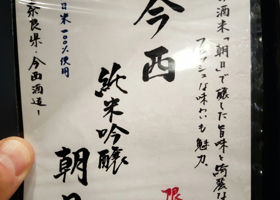 酒米「朝日」で醸した旨味と綺麗な
フレッシュな味わいも魅力。
今西
純米吟醸
朝日
日米一〇〇%使用
奈良県・今西酒造
限